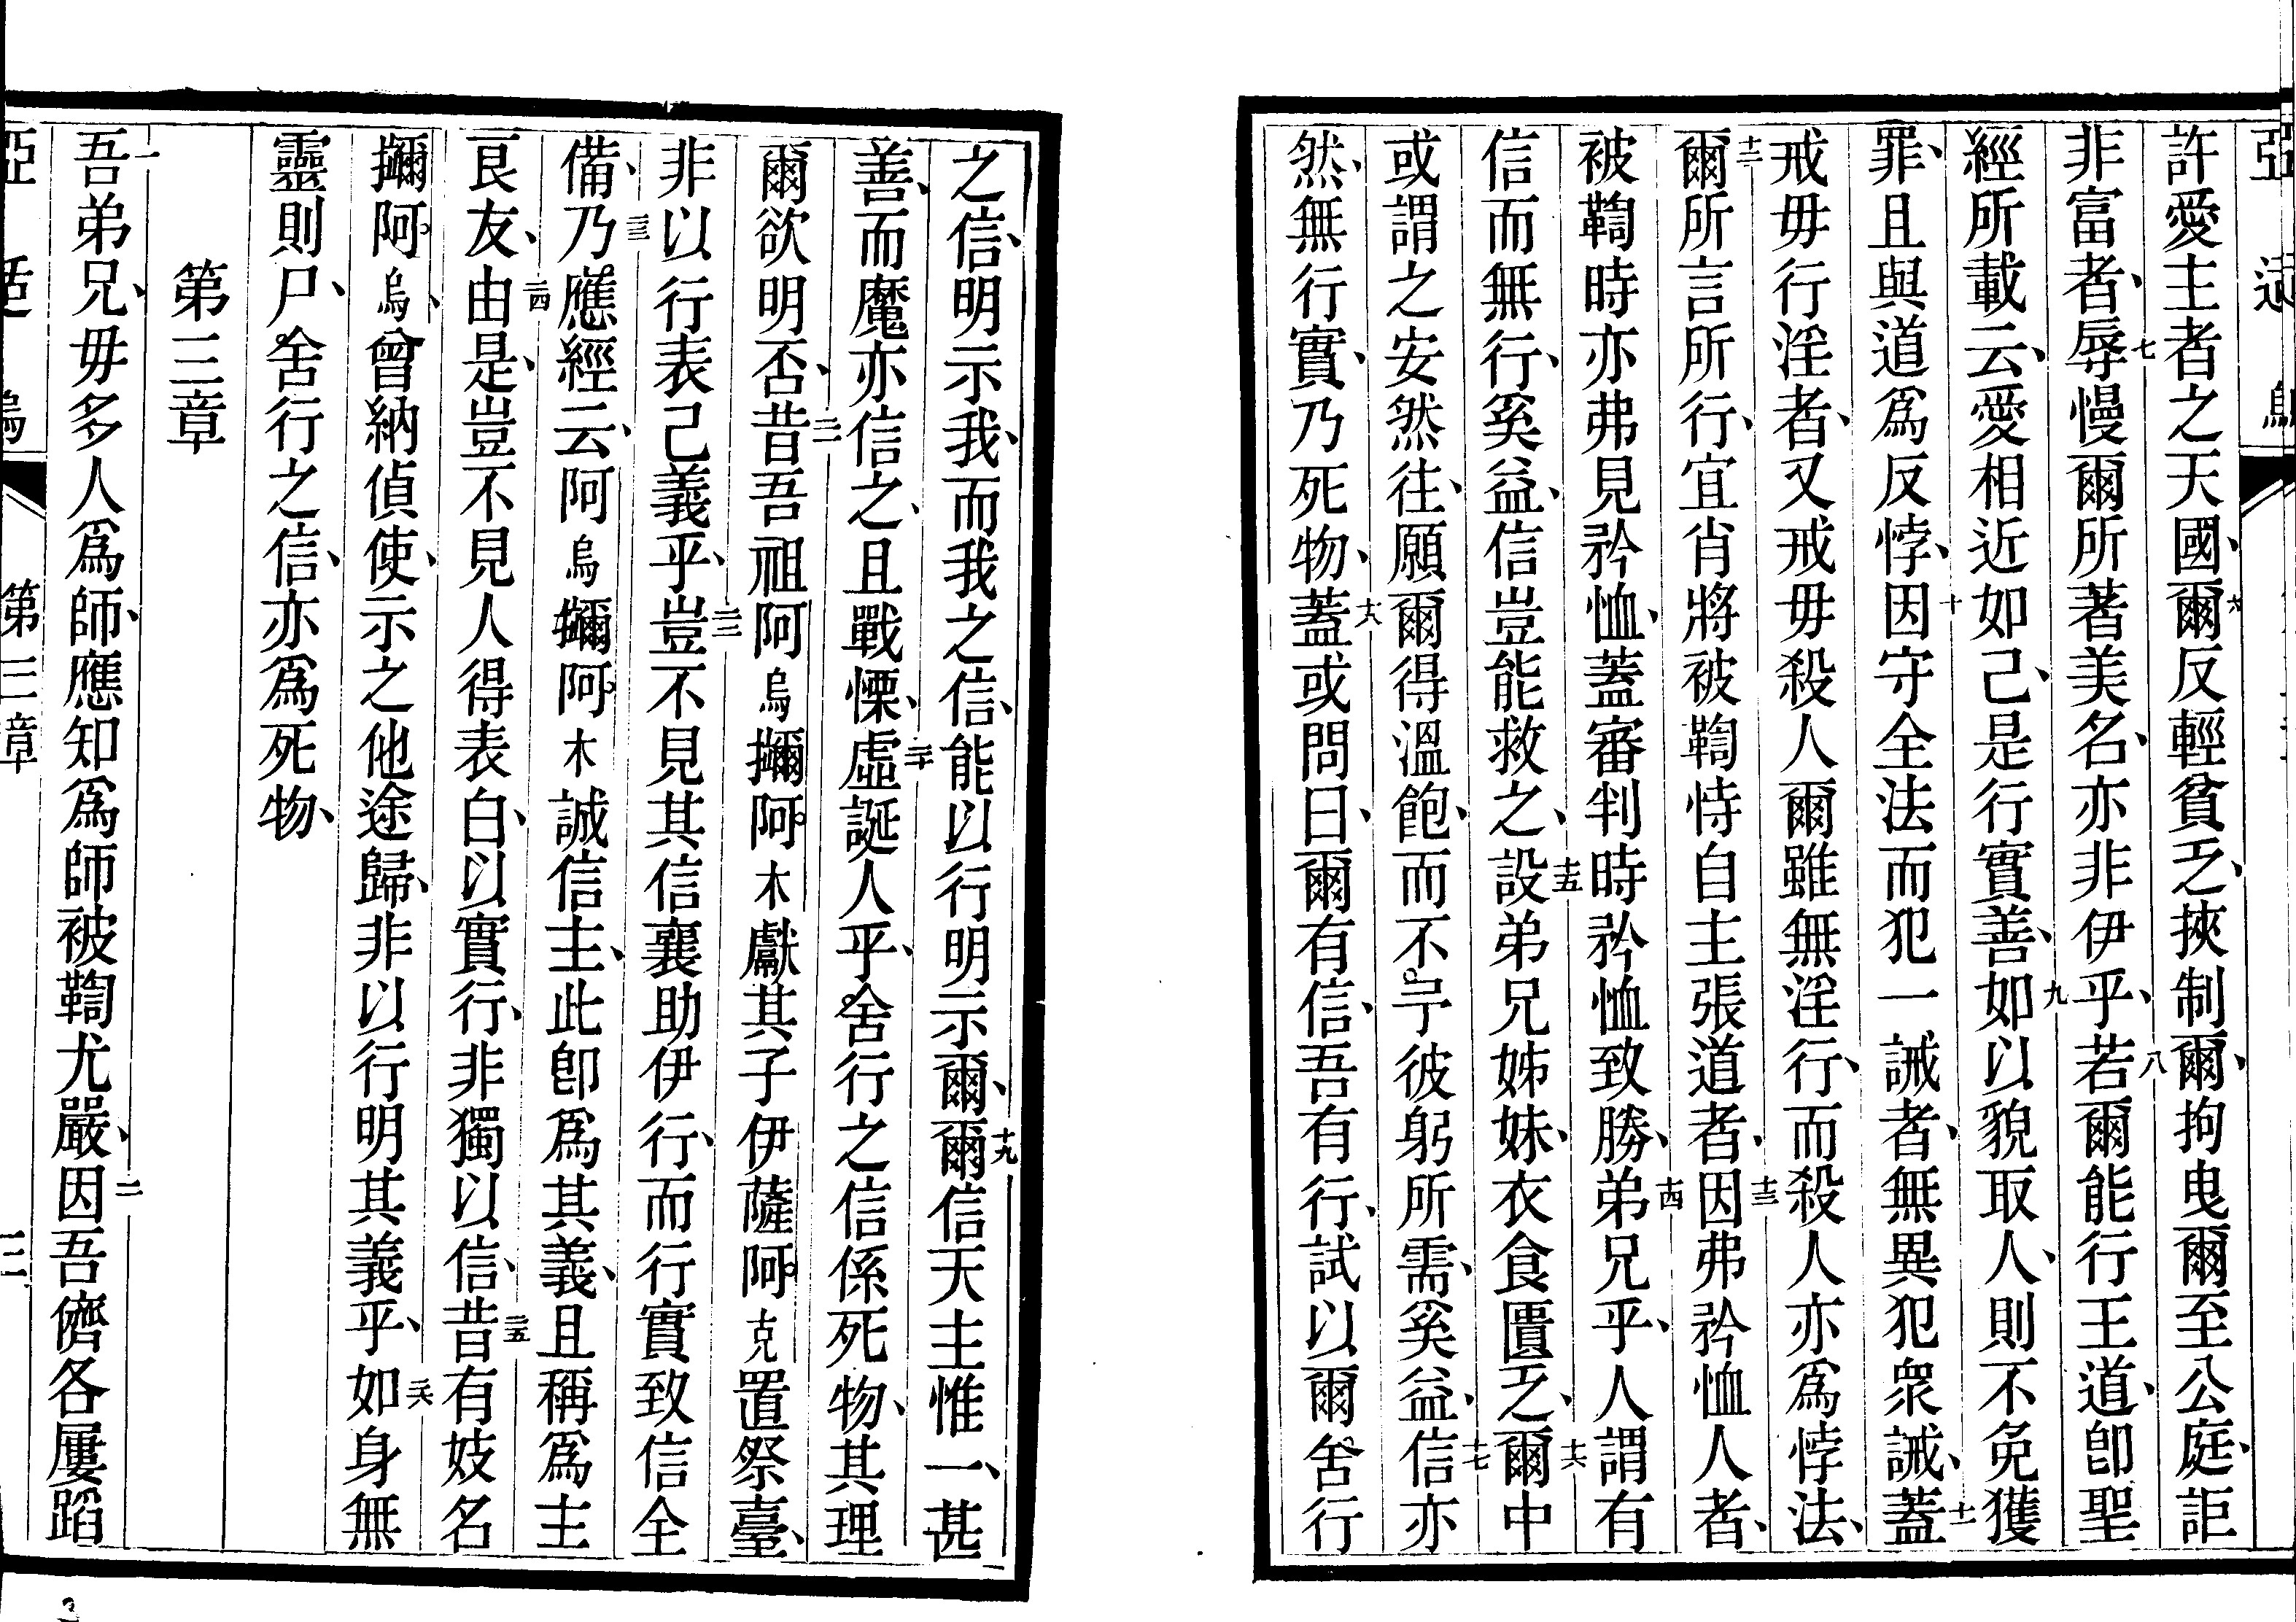 許愛主者之天國、六爾反輕貧乏、挾制爾、拘曳爾至公庭、詎
非富者、七辱慢爾所著美名、亦非伊乎、八若爾能行王道、卽聖
經所載云、愛相近如己、是行實善、九如以貌取人、則不免獲
罪、且與道爲反悖、十因守全法而犯一誡者、無異犯眾誡、十一蓋
戒毋行淫者、又戒毋殺人爾雖無淫行、而殺人亦爲悖法、
十二爾所言所行、宜肖將被鞫恃自主張道者、十三因弗矜恤人者、
被鞫時亦弗見矜恤、蓋審判時矜恤致勝、十四弟兄乎、人謂有
信而無行、奚益、信豈能救之、十五設弟兄姊妹、衣食匱乏、十六爾中
或謂之安然往、願爾得溫飽、而不予彼躬所需、奚益、十七信亦
然、無行實、乃死物、十八蓋或問曰、爾有信、吾有行、試以爾舍行
之信、明示我、而我之信、能以行明示爾、十九爾信天主惟一、甚
善、而魔亦信之、且戰慄、二十虛誕人乎、舍行之信係死物、其理
爾欲明否、二一昔吾祖阿烏擳阿木獻其子伊薩阿克置祭臺、
非以行表己義乎、二二豈不見其信襄助伊行、而行實致信全
備、二三乃應經云、阿烏擳阿木誠信主、此卽爲其義、且稱爲主
良友、二四由是、豈不見人得表白、以實行、非獨以信、二五昔有妓名
擳阿烏、曾納偵使、示之他途歸、非以行明其義乎、二六如身無
靈則尸、舍行之信、亦爲死物、
第三章
一吾弟兄、毋多人爲師、應知爲師被鞫尤嚴、二因吾儕各屢蹈
第三章
三